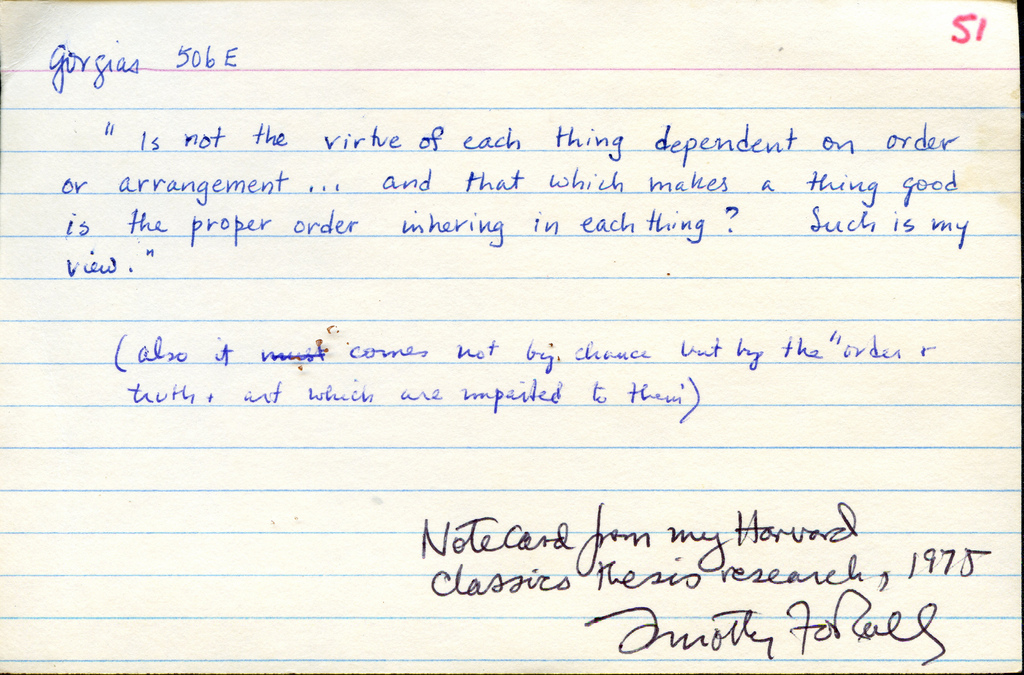 51
Gorgias 506E
" Is not the virtue of each thing dependent on order
or arrangement ... and that which makes a thing good
is the proper order inhering in each thing? Such is my
view."
(also it must comes not by chance but by the "order +
truth + art which are imparted to them")
Notecard from my Harvard
Classics thesis research, 1975
Timothy